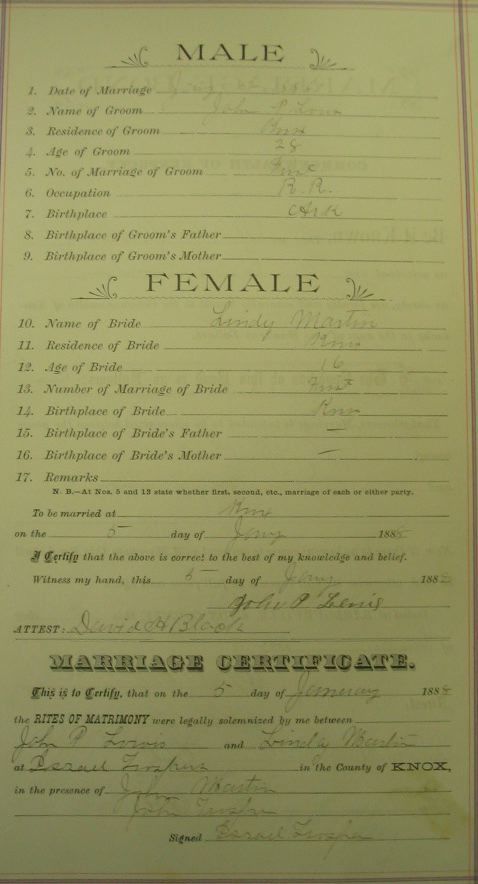 MALE
1. Date of Marriage
2. Name of Groom John P
3. Residence of Groom Knox
4. Age of Groom 28
5. No. of Marriage of Groom First
6. Occupation R. R.
7. Birthplace
8. Birthplace of Groom's Father
9. Birthplace of Groom's Mother
FEMALE
10. Name of Bride Lindy Martin
11. Residence of Bride Knox
12. Age of Bride 16
13. Number of Marriage of Bride First
14. Birthplace of Bride Knox
15. Birthplace of Bride's Father —
16. Birthplace of Bride's Mother —
17. Remarks
N. B.—At Nos. 5 and 13 state whether first, second, etc., marriage of each or either party.
To be married at Knox
on the 5 day of Jany 188
I Certify that the above is correct to the best of my knowledge and belief.
Witness my hand, this 5 day of Jany 188
John P Lewis
ATTEST: David H Black
MARRIAGE CERTIFICATE.
This is to Certify, that on the 5 day of January 188
the RITES OF MATRIMONY were legally solemnized by me between
John P and Linda Martin
at in the County of KNOX,
in the presence of John Martin
John
Signed